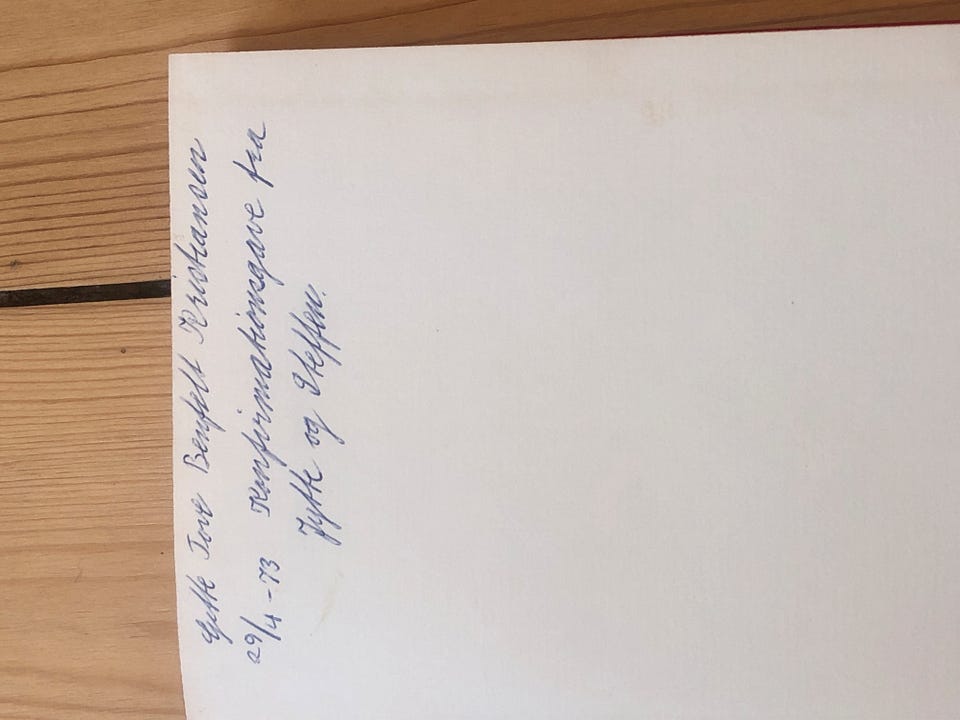 Gitte Tove Benfelt Kristiansen
29/4-73 Konfirmationsgave fra
Jytte og Steffen.